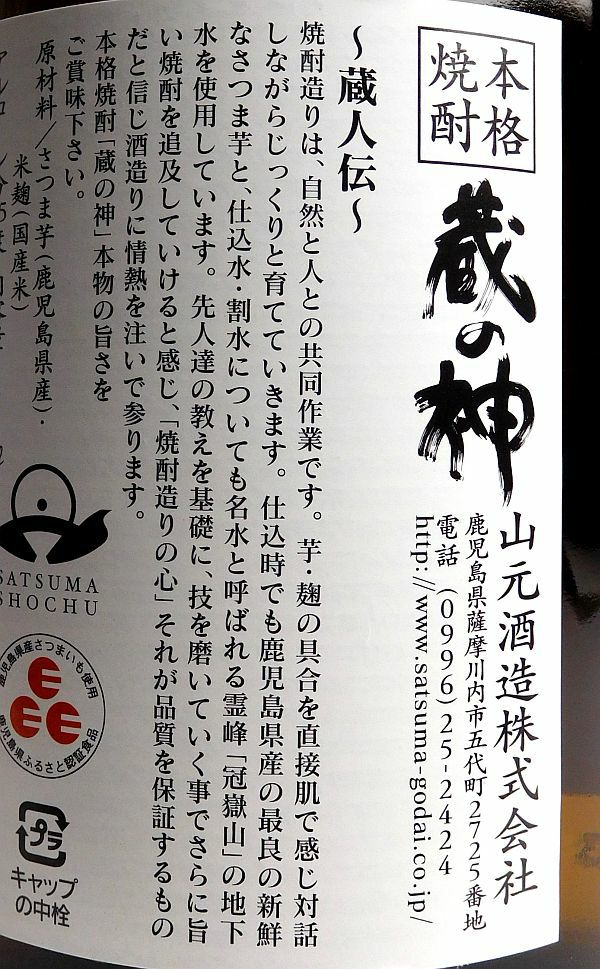 本格
焼酎
蔵の神
山元酒造株式会社
鹿児島県薩摩川内市五代町2725番地
電話 (0996)25-2424
http://www.satsuma-godai.co.jp/
～蔵人伝～
焼酎造りは、自然と人との共同作業です。芋・麹の具合を直接肌で感じ対話
しながらじっくりと育てていきます。仕込時でも鹿児島県産の最良の新鮮
なさつま芋と、仕込水・割水についても名水と呼ばれる霊峰「冠嶽山」の地下
水を使用しています。先人達の教えを基礎に、技を磨いていく事でさらに旨
い焼酎を追及していけると感じ、「焼酎造りの心」それが品質を保証するもの
だと信じ酒造りに情熱を注いで参ります。
本格焼酎「蔵の神」本物の旨さを
ご賞味下さい。
原材料／さつま芋(鹿児島県産)・
米麹(国産米)
SATSUMA
SHOCHU
鹿児島県産さつまいも使用
鹿児島県ふるさと認証食品
プラ
キャップ
の中栓